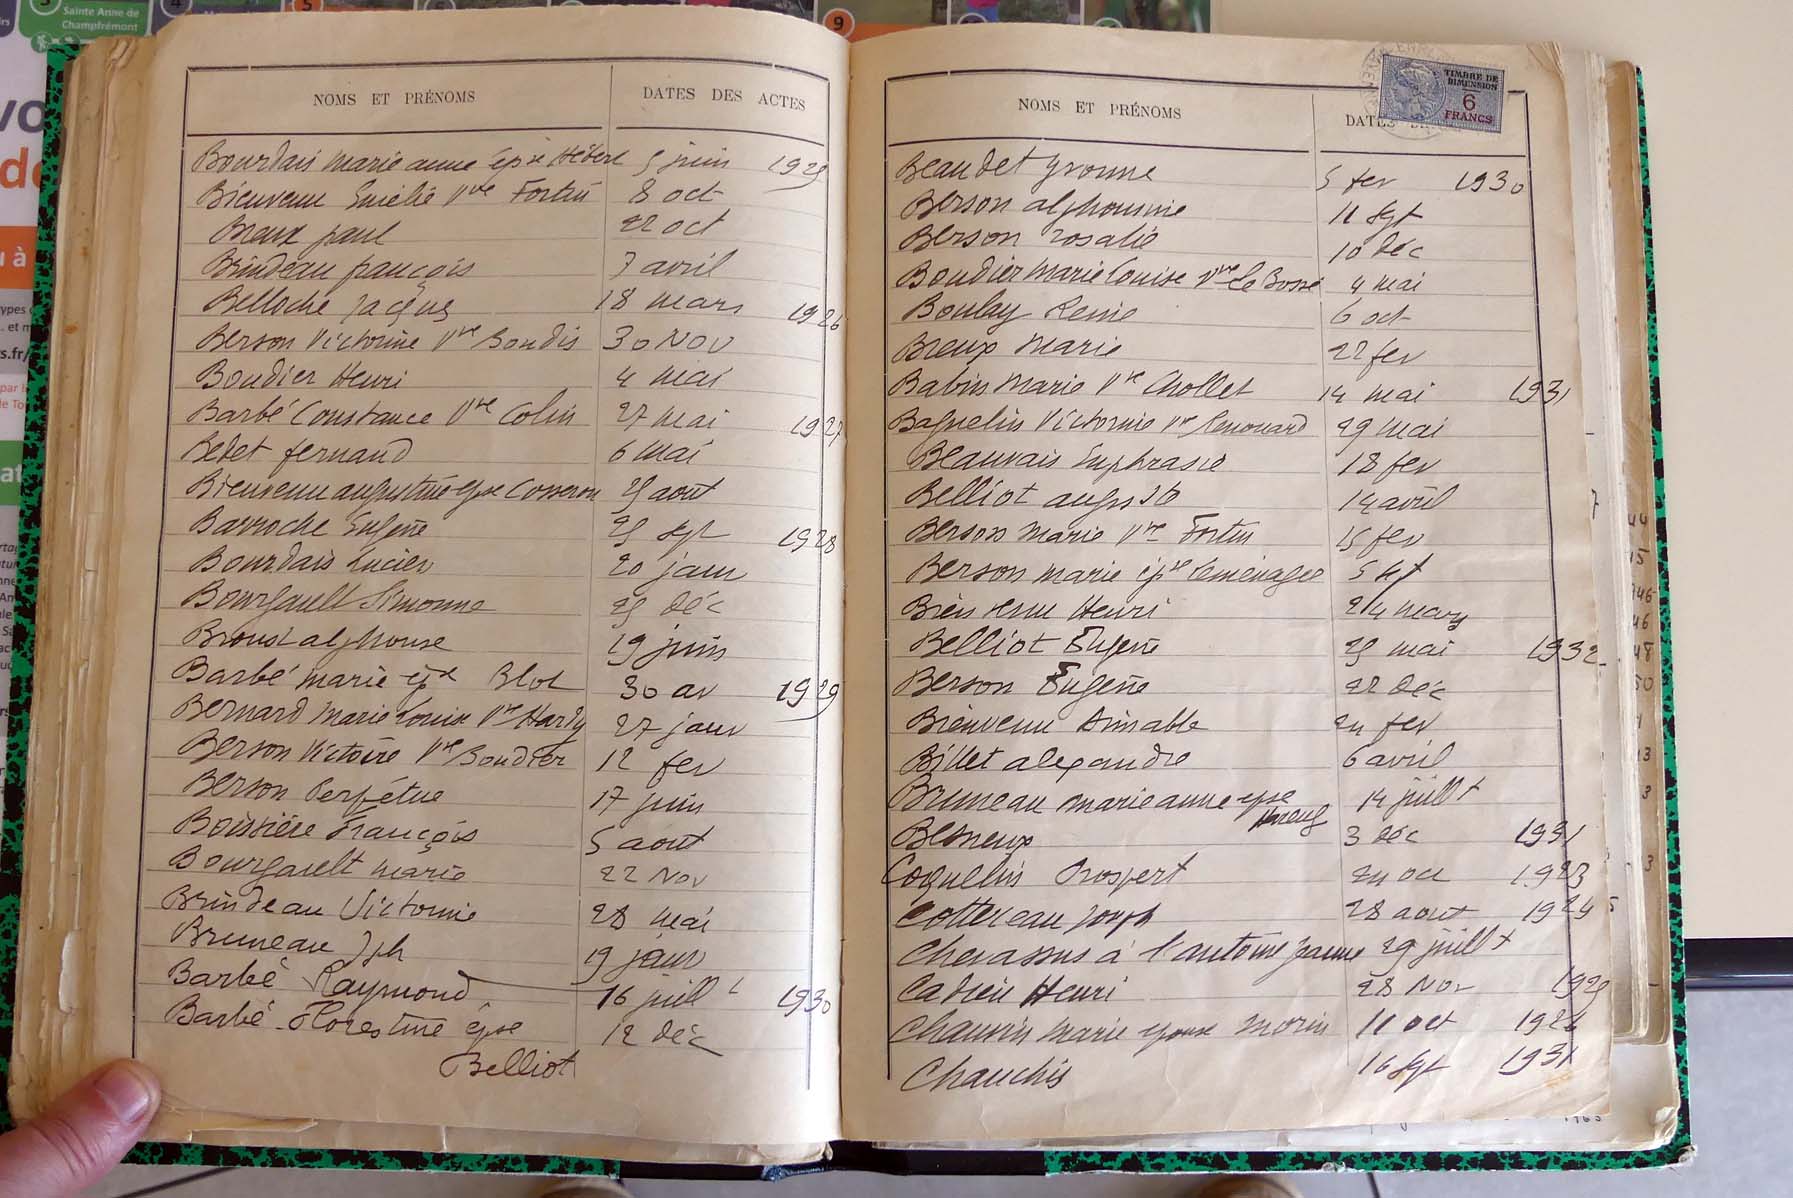 Sainte Anne de
Champfrémont
5
9
NOMS ET PRÉNOMS
DATES DES ACTES
Bourdais marie anne épse Hébert 5 juin 1925
Bienvenu Emélie Vve Fortin 8 oct
Breux paul 22 oct
Brindeau françois 7 avril
Belloche Jacques 18 mars 1926
Berson Victorine Vve Boudis 30 Nov
Boudier Henri 4 mai
Barbé Constance Vve Colin 27 mai 1927
Bedet fernand 6 mai
Bienvenu augustine epse Cosseron 25 aout
Barroche Eugène 25 spt 1928
Bourdais Lucien 20 janv
Bourgault Simonne 25 déc
Broust alphonse 19 juin
Barbé marie épse Blot 30 av 1929
Bernard Marie Louise Vve Hardy 27 janv
Berson Victoire Vve Boudier 12 fev
Berson Perpétue 17 juin
Boissière François 5 aout
Bourgault marie 22 Nov
Brindeau Victorine 28 mai
Bruneau Jph 19 janv
Barbé Raymond 16 juill t 1930
Barbé Florestine épse 12 déc
Belliot
TIMBRE DE
DIMENSION
6
FRANCS
NOMS ET PRÉNOMS
DATES
Beaudet Yvonne 5 fev 1930
Berson alphonsine 11 spt
Berson rosalie 10 déc
Boudier Marie Louise Vve Le Bossé 4 mai
Boulay Renée 6 oct
Breux Marie 22 fev
Babin Marie Vve Chollet 14 mai 1931
Victorine Vve Renouard 29 mai
Beauvais Euphrasie 18 fev
Belliot auguste 14 avril
Berson Marie Vve Fortin 15 fev
Berson marie épse Leménager 5 spt
Bienvenu Henri 24 mars
Belliot Eugène 25 mai 1932
Berson Eugène 22 déc
Bienvenu Aimable 24 fev
Billet alexandre 6 avril
Bruneau marie anne epse 14 juill t
Besneux 3 déc 1931
Coquelin Prospert 24 oct 1923
Cottereau Joseph 28 aout 1924
Chevassus à l'antoine Jeanne 29 juill t
Cadieu Henri 28 Nov 1925
Chauvin Marie epouse Morin 11 oct 1926
Chauchis 16 spt 1931